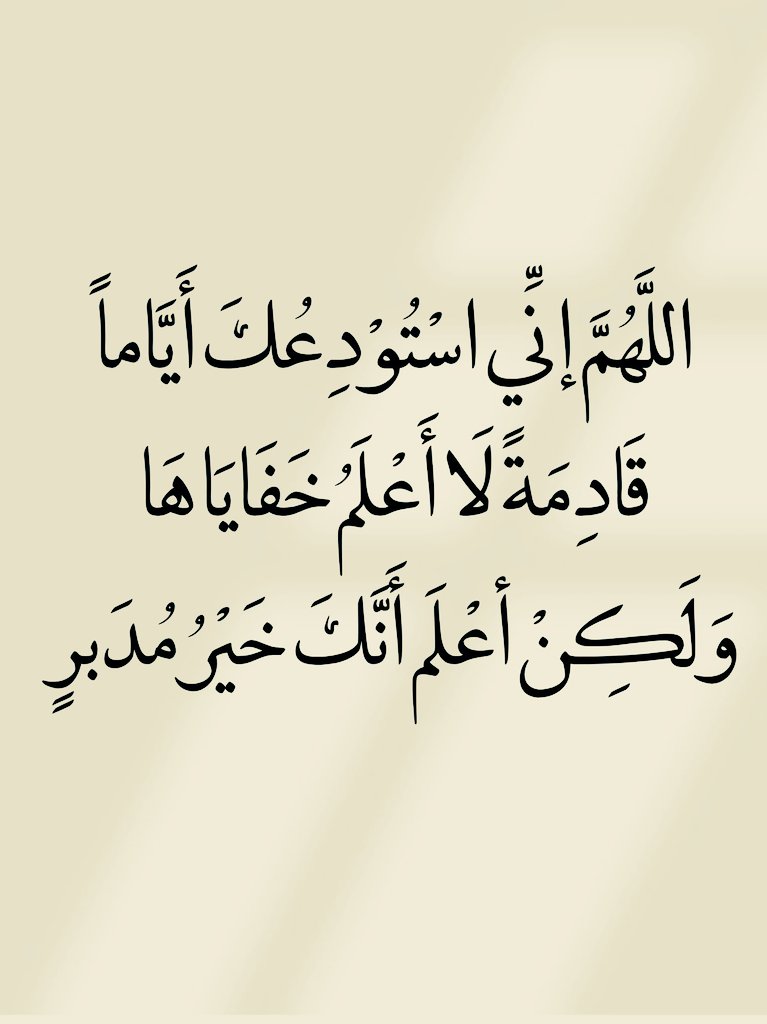 اللَّهُمَّ إنِّي اسْتُوْدِعُكَ أَيَّاماً
قَادِمَةً لَا أَعْلَمُ خَفَايَاهَا
وَلَكِنْ أعْلَم أَنَّكَ خَيْرُ مُدَبرٍ